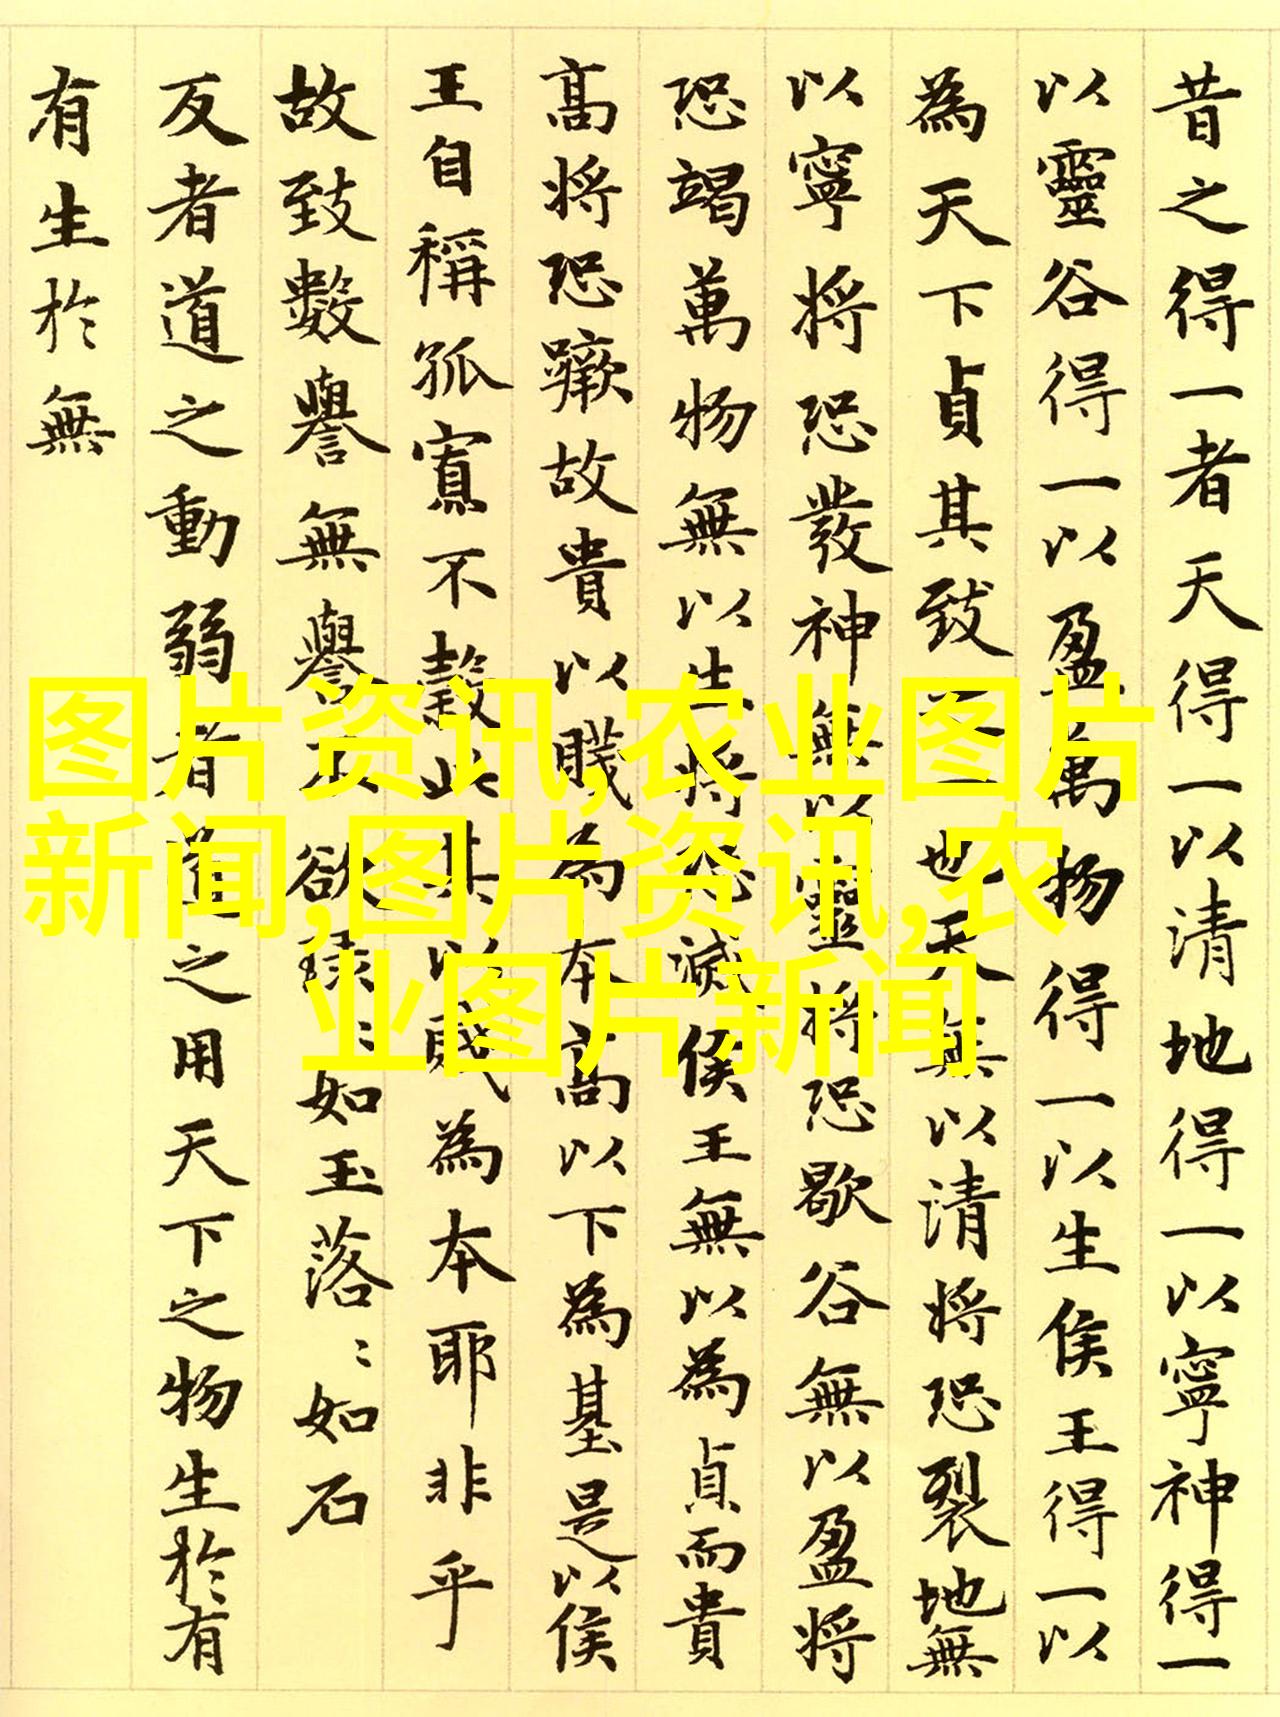 昔之得一者天得一以清地得一以寧神得一
以靈谷得一以盈萬物得一以生侯王得一以
為天下貞其致之一也天無以清將恐裂地無
以寧將恐發神無以靈將恐歇谷無以盈將
恐竭萬物無以生將恐滅侯王無以為貞而貴
高將恐蹶故貴以賤為本高以下為基是以侯
王自稱孤寡不穀此其以賤為本耶非乎
故致數譽無譽不欲琭〻如玉落〻如石
反者道之動弱者道之用天下之物生於有
有生於無
图片资讯,农业图片
新闻,图片资讯,农
业图片新闻